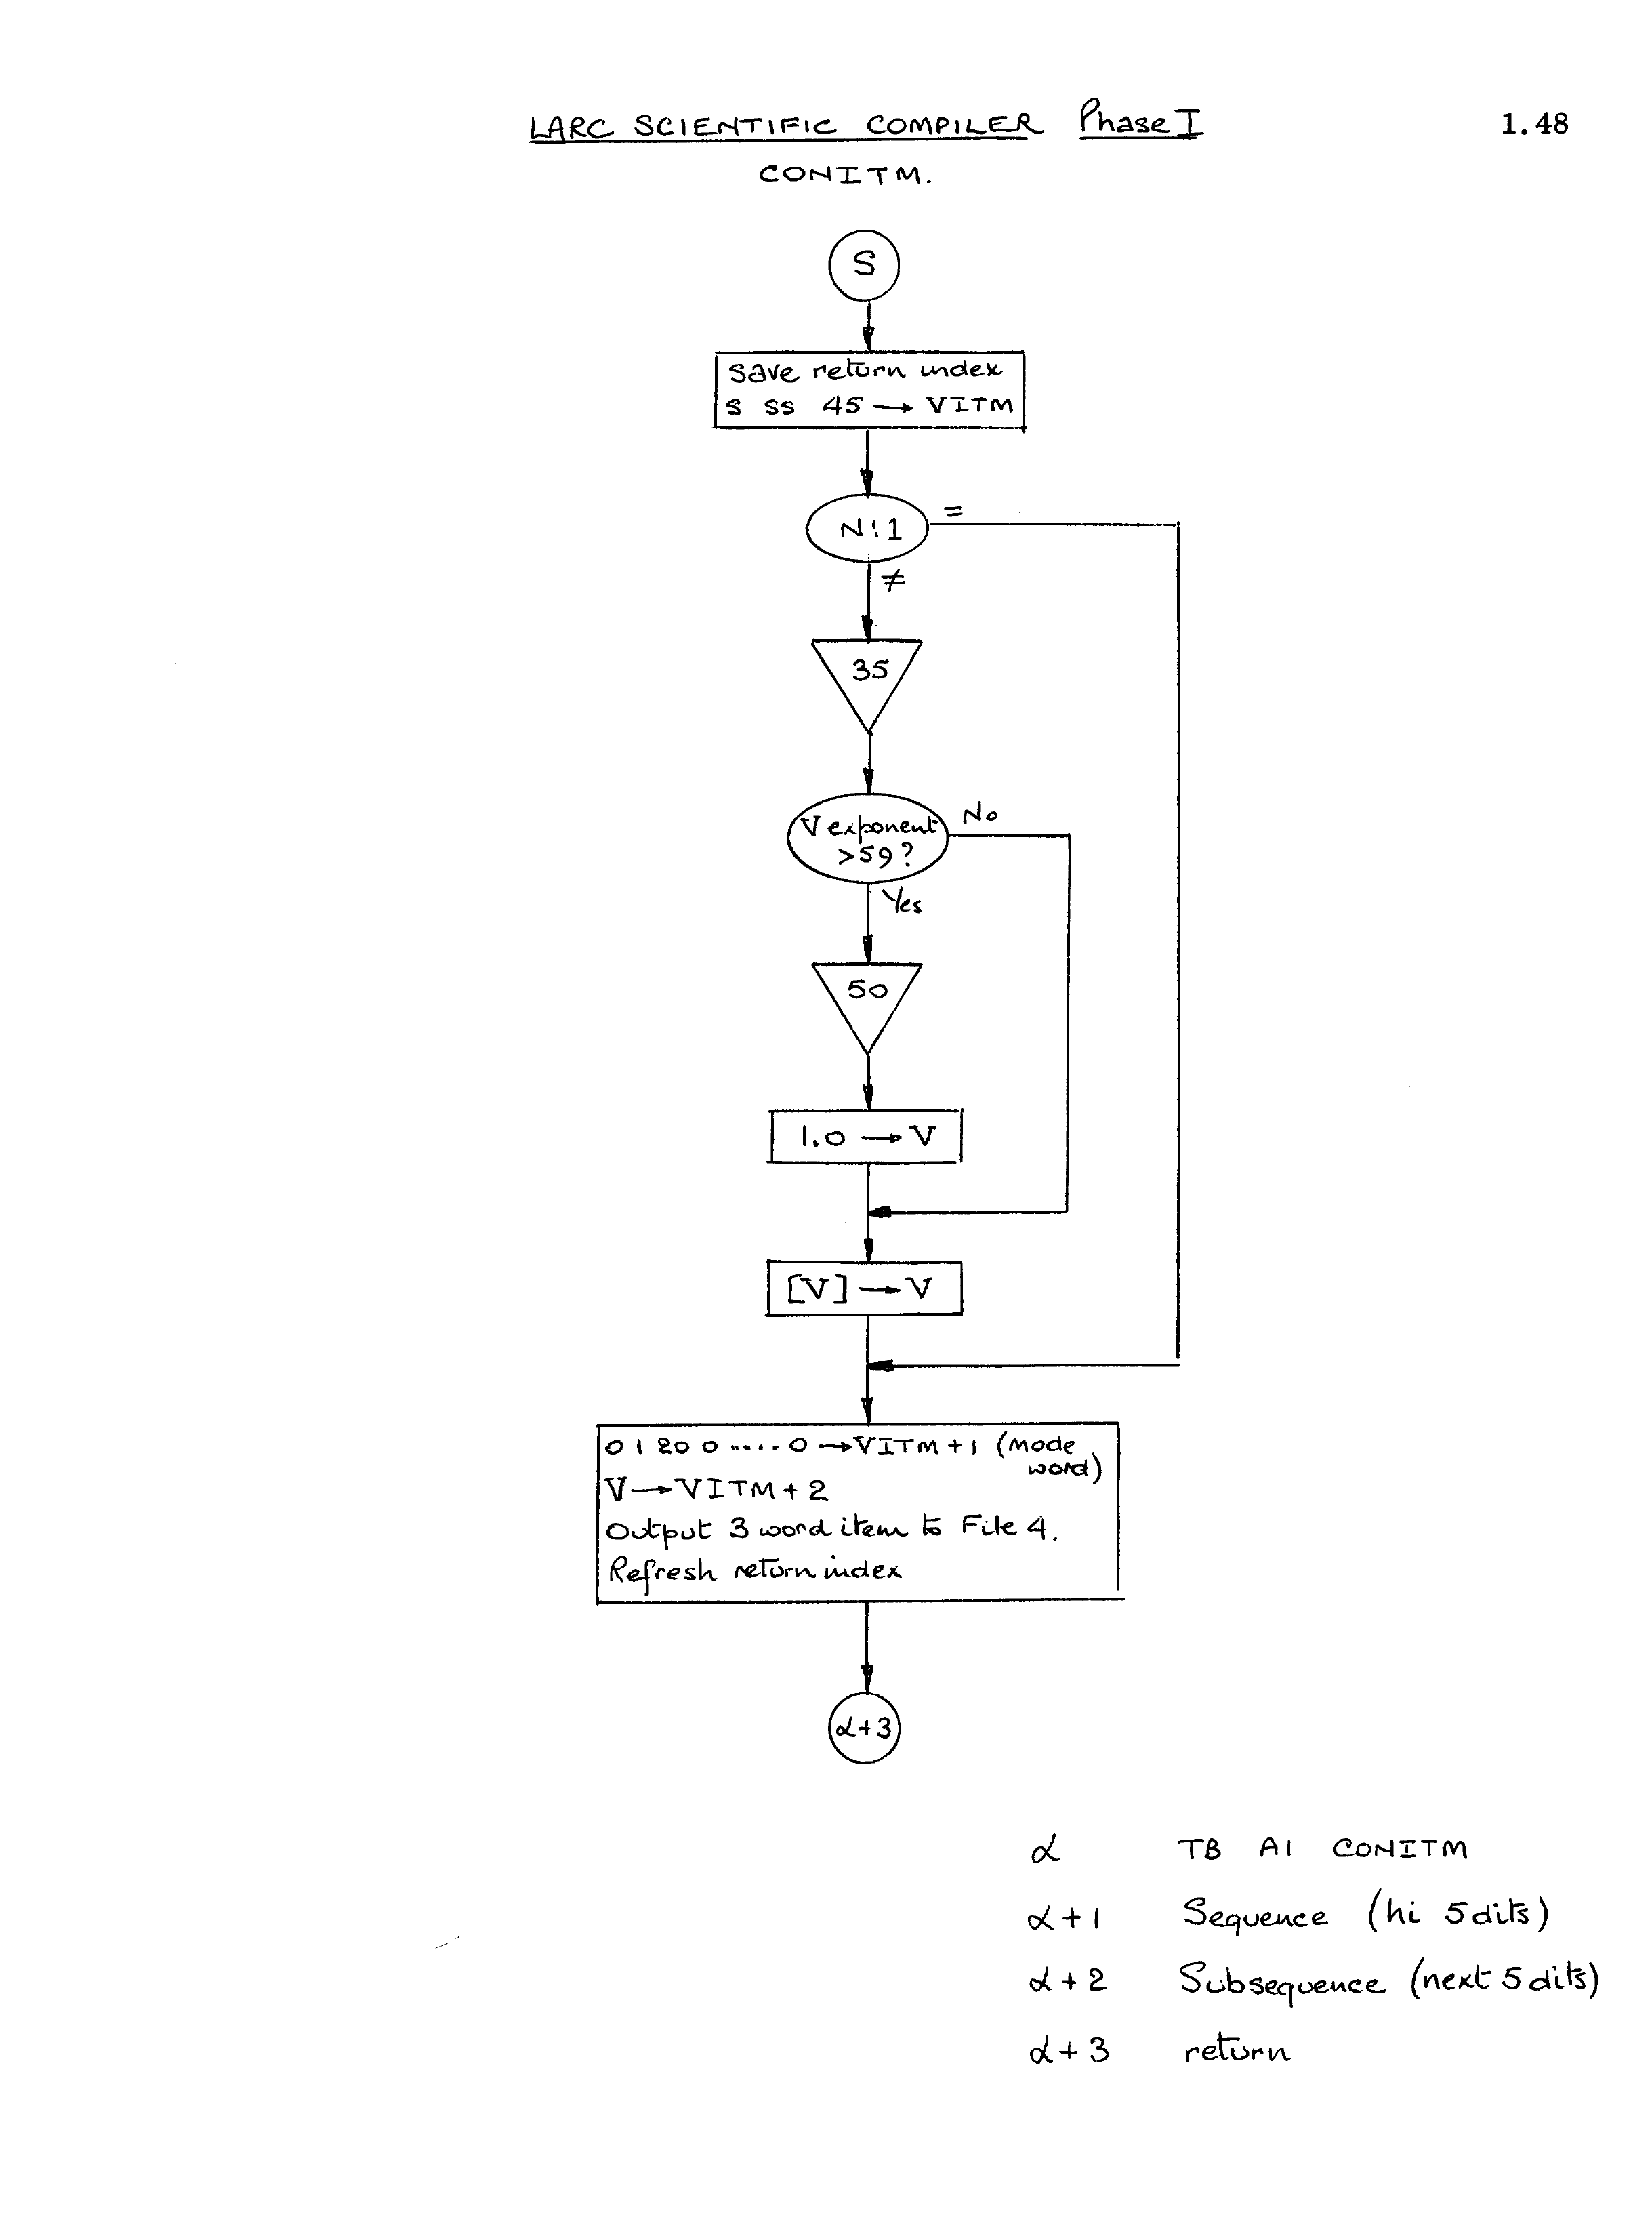 LARC SCIENTIFIC COMPILER Phase I
1.48
CONITM.
S
Save return index
S SS 45 → VITM
N:1
=
≠
35
V exponent
>59?
No
Yes
50
1.0 → V
[V] → V
0 1 20 0 ..... 0 → VITM + 1 (mode
word)
V → VITM + 2
Output 3 word item to File 4.
Refresh return index
α+3
α TB A1 CONITM
α+1 Sequence (hi 5 dits)
α+2 Subsequence (next 5 dits)
α+3 return